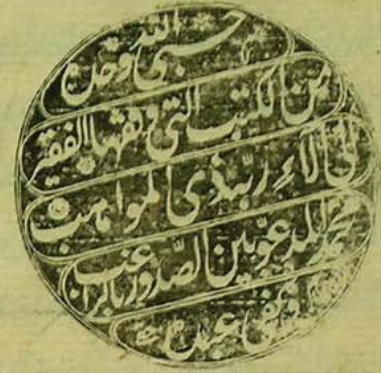 حسبي الله وحده
من الكتب التي وقفها الفقير
الى آلاء ربه ذي المواهب
محمد المدعو بين الصدور بالراغب
عبده